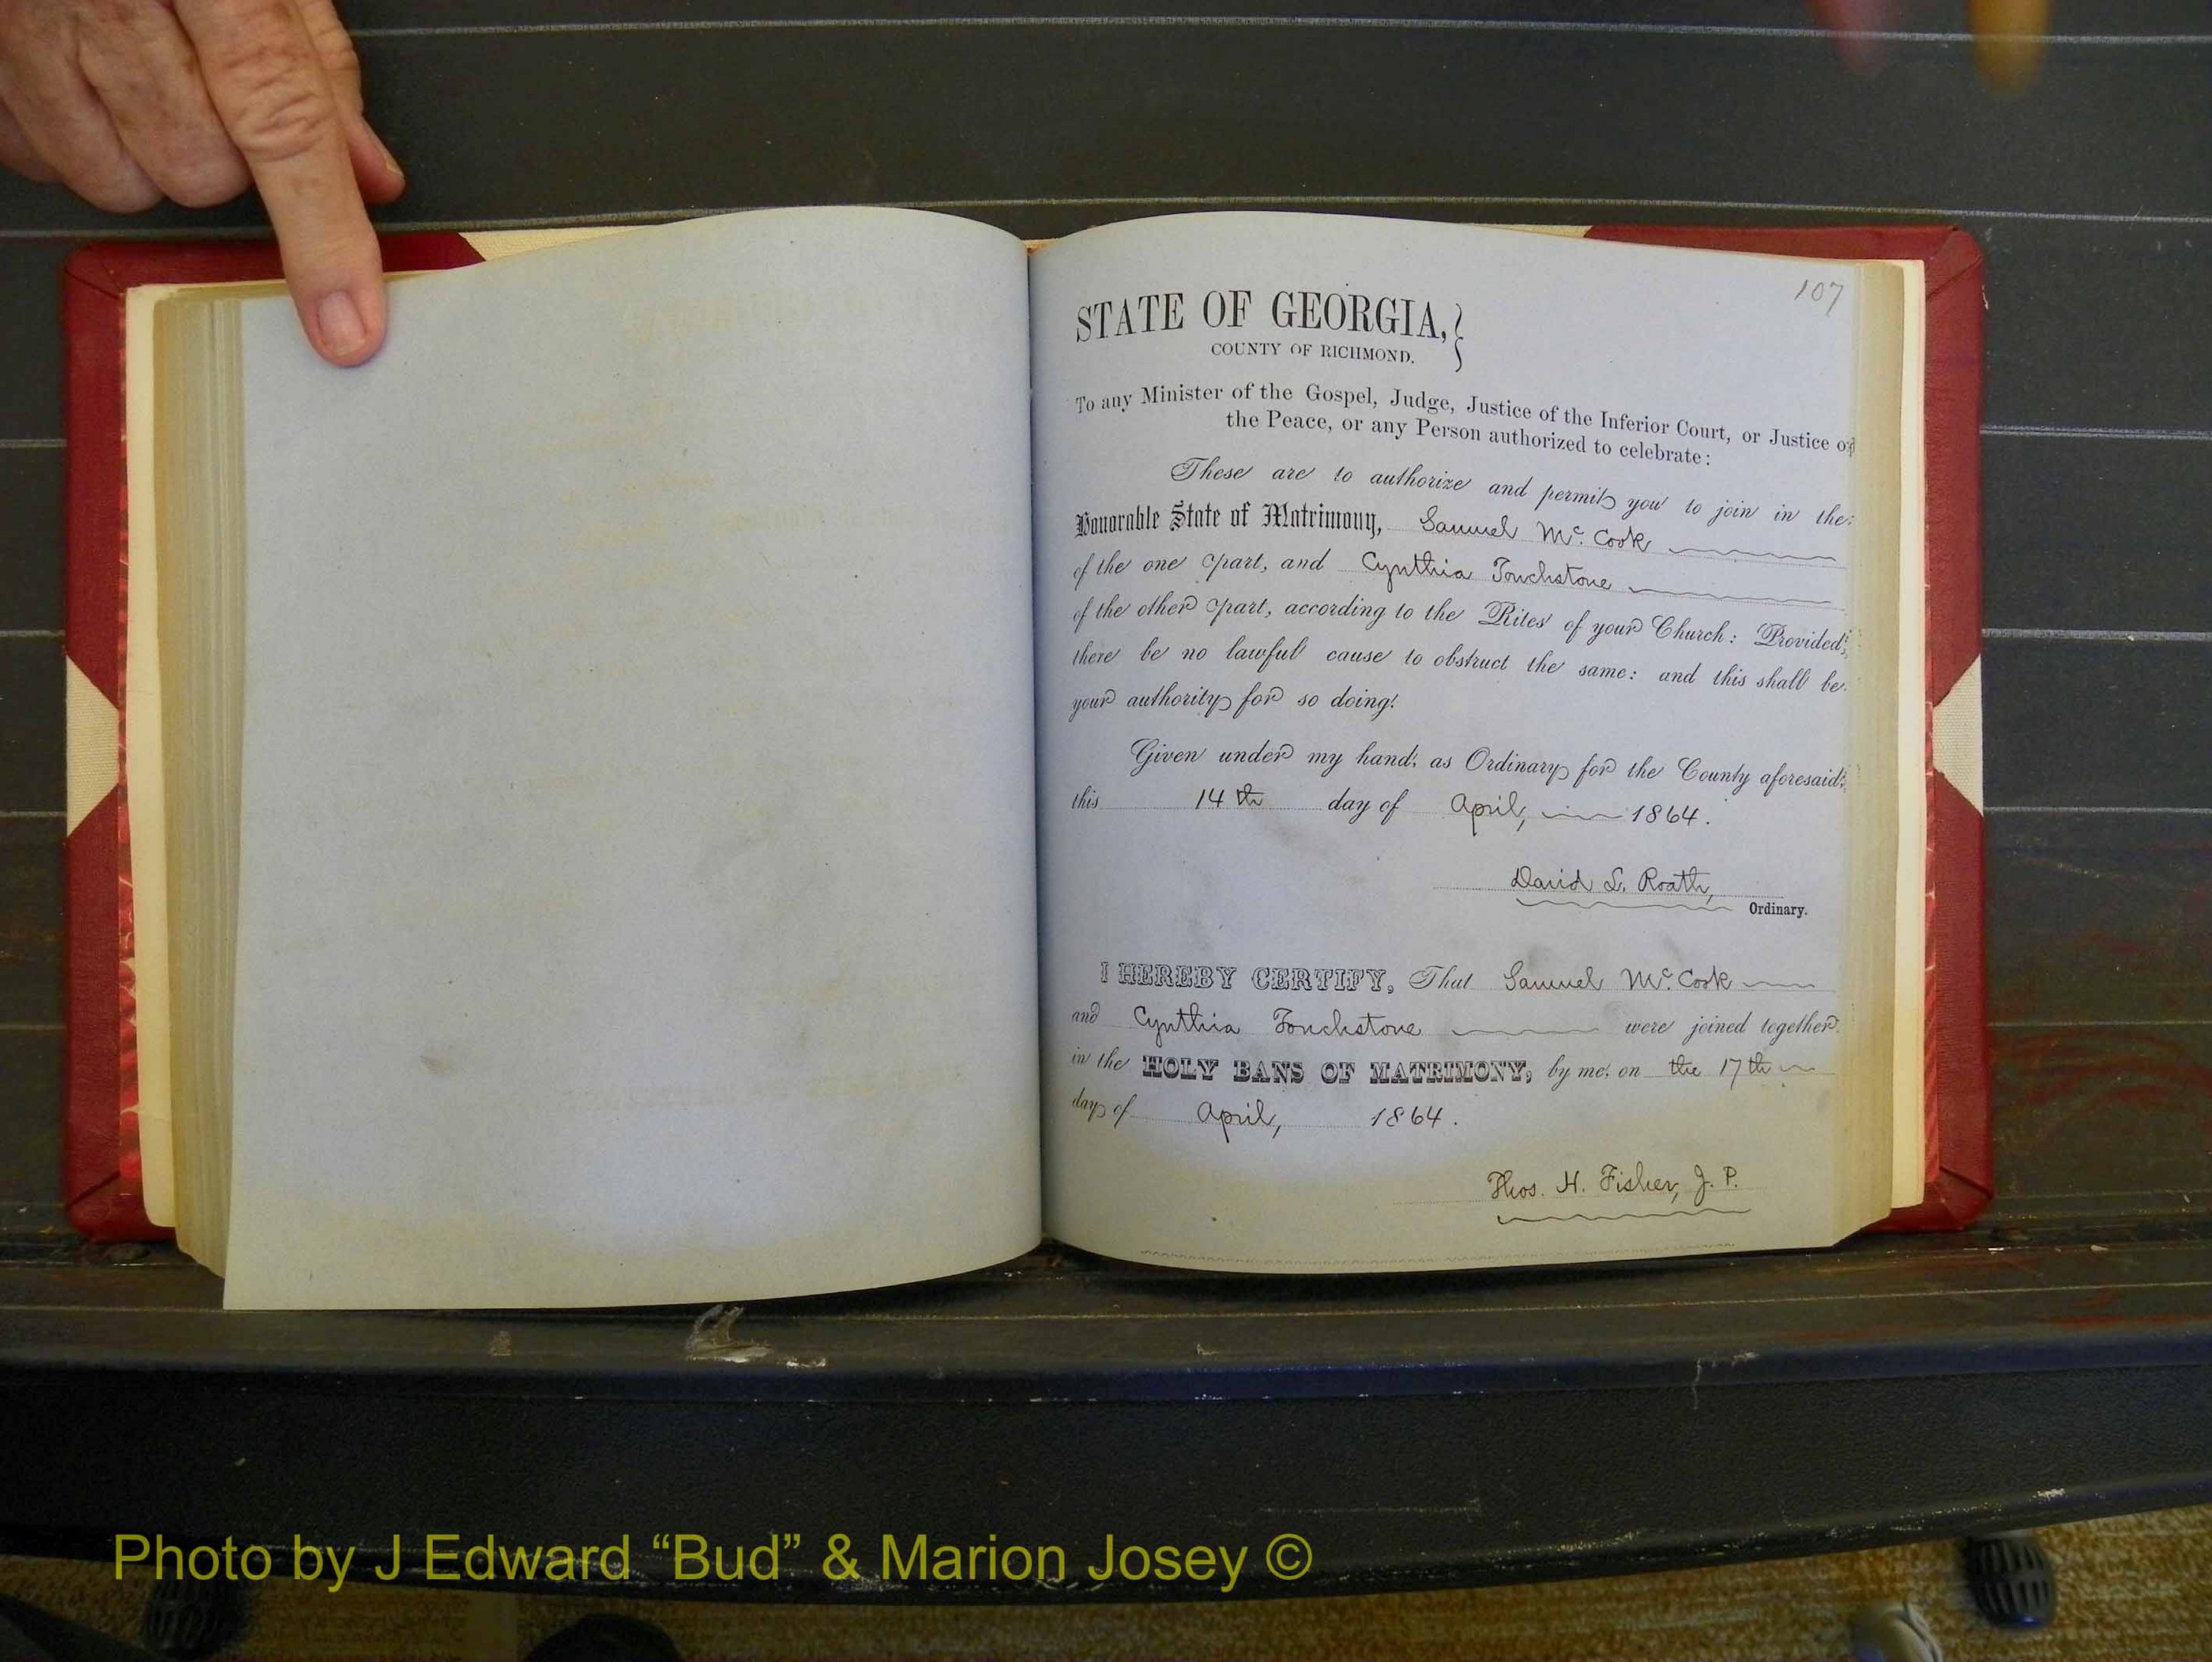 107
STATE OF GEORGIA,
COUNTY OF RICHMOND.
To any Minister of the Gospel, Judge, Justice of the Inferior Court, or Justice of
the Peace, or any Person authorized to celebrate:
These are to authorize and permit you to join in the
Honorable State of Matrimony, Samuel Mc. Cook
of the one part, and Cynthia Touchstone
of the other part, according to the Rites of your Church: Provided
there be no lawful cause to obstruct the same: and this shall be
your authority for so doing.
Given under my hand, as Ordinary for the County aforesaid,
this 14th day of April, 1864.
David L. Roath,
Ordinary.
I HEREBY CERTIFY, That Samuel Mc. Cook
and Cynthia Touchstone were joined together
in the HOLY BANS OF MATRIMONY, by me, on the 17th
day of April, 1864.
Thos. H. Fisher, J. P.
Photo by J Edward “Bud” & Marion Josey ©